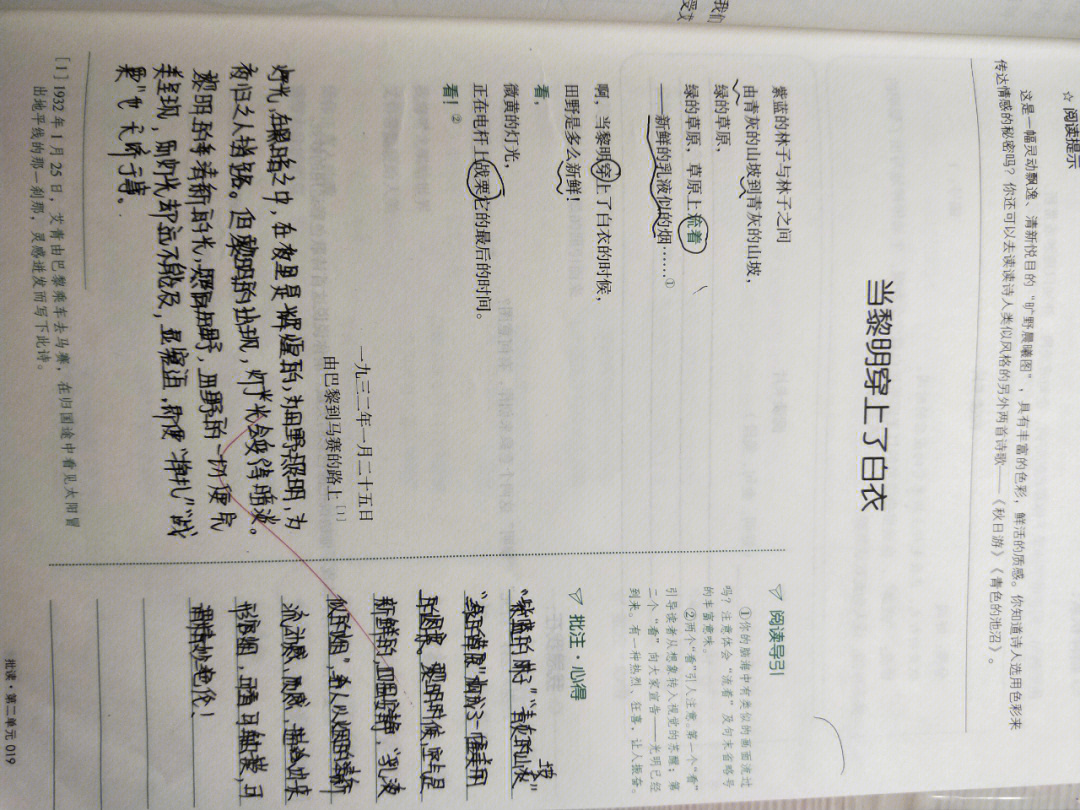 我们
受戈
☆ 阅读提示
这是一幅灵动飘逸、清新悦目的“旷野晨曦图”，具有丰富的色彩，鲜活的质感。你知道诗人选用色彩来
传达情感的秘密吗？你还可以去读读诗人类似风格的另外两首诗歌——《秋日游》《青色的池沼》。
当黎明穿上了白衣
紫蓝的林子与林子之间
由青灰的山坡到青灰的山坡，
绿的草原，
绿的草原，草原上流着
——新鲜的乳液似的烟……①
啊，当黎明穿上了白衣的时候，
田野是多么新鲜！
看，
微黄的灯光，
正在电杆上战栗它的最后的时间。
看！②
一九三二年一月二十五日
由巴黎到马赛的路上[1]
灯光，在黑暗之中，在夜里是辉煌的，为田野照明，为
夜归之人指路。但黎明的出现，灯光会变得暗淡。
黎明的清新的光，照向田野，田野的一切便完
美呈现，而灯光却远不能及，即便“挣扎”“战
栗”也无济于事。
[1] 1932 年 1 月 25 日，艾青由巴黎乘车去马赛，在归国途中看见太阳冒
出地平线的那一刹那，灵感迸发而写下此诗。
▽ 阅读导引
①你的脑海中有类似的画面流过
吗？注意体会“流着”及句末省略号
的丰富意味。
②两个“看”引人注意。第一个“看”
引导读者从想象转入视觉的苏醒；第
二个“看”向大家宣告——光明已经
到来。有一种热烈、狂喜，让人振奋。
▽ 批注·心得
“紫蓝的林子”“青灰的山坡”
构成了一幅美丽
黎明时候，田野是
新鲜的，“乳液
似的烟”，给人以烟的清新
流动感
批读·第二单元 019